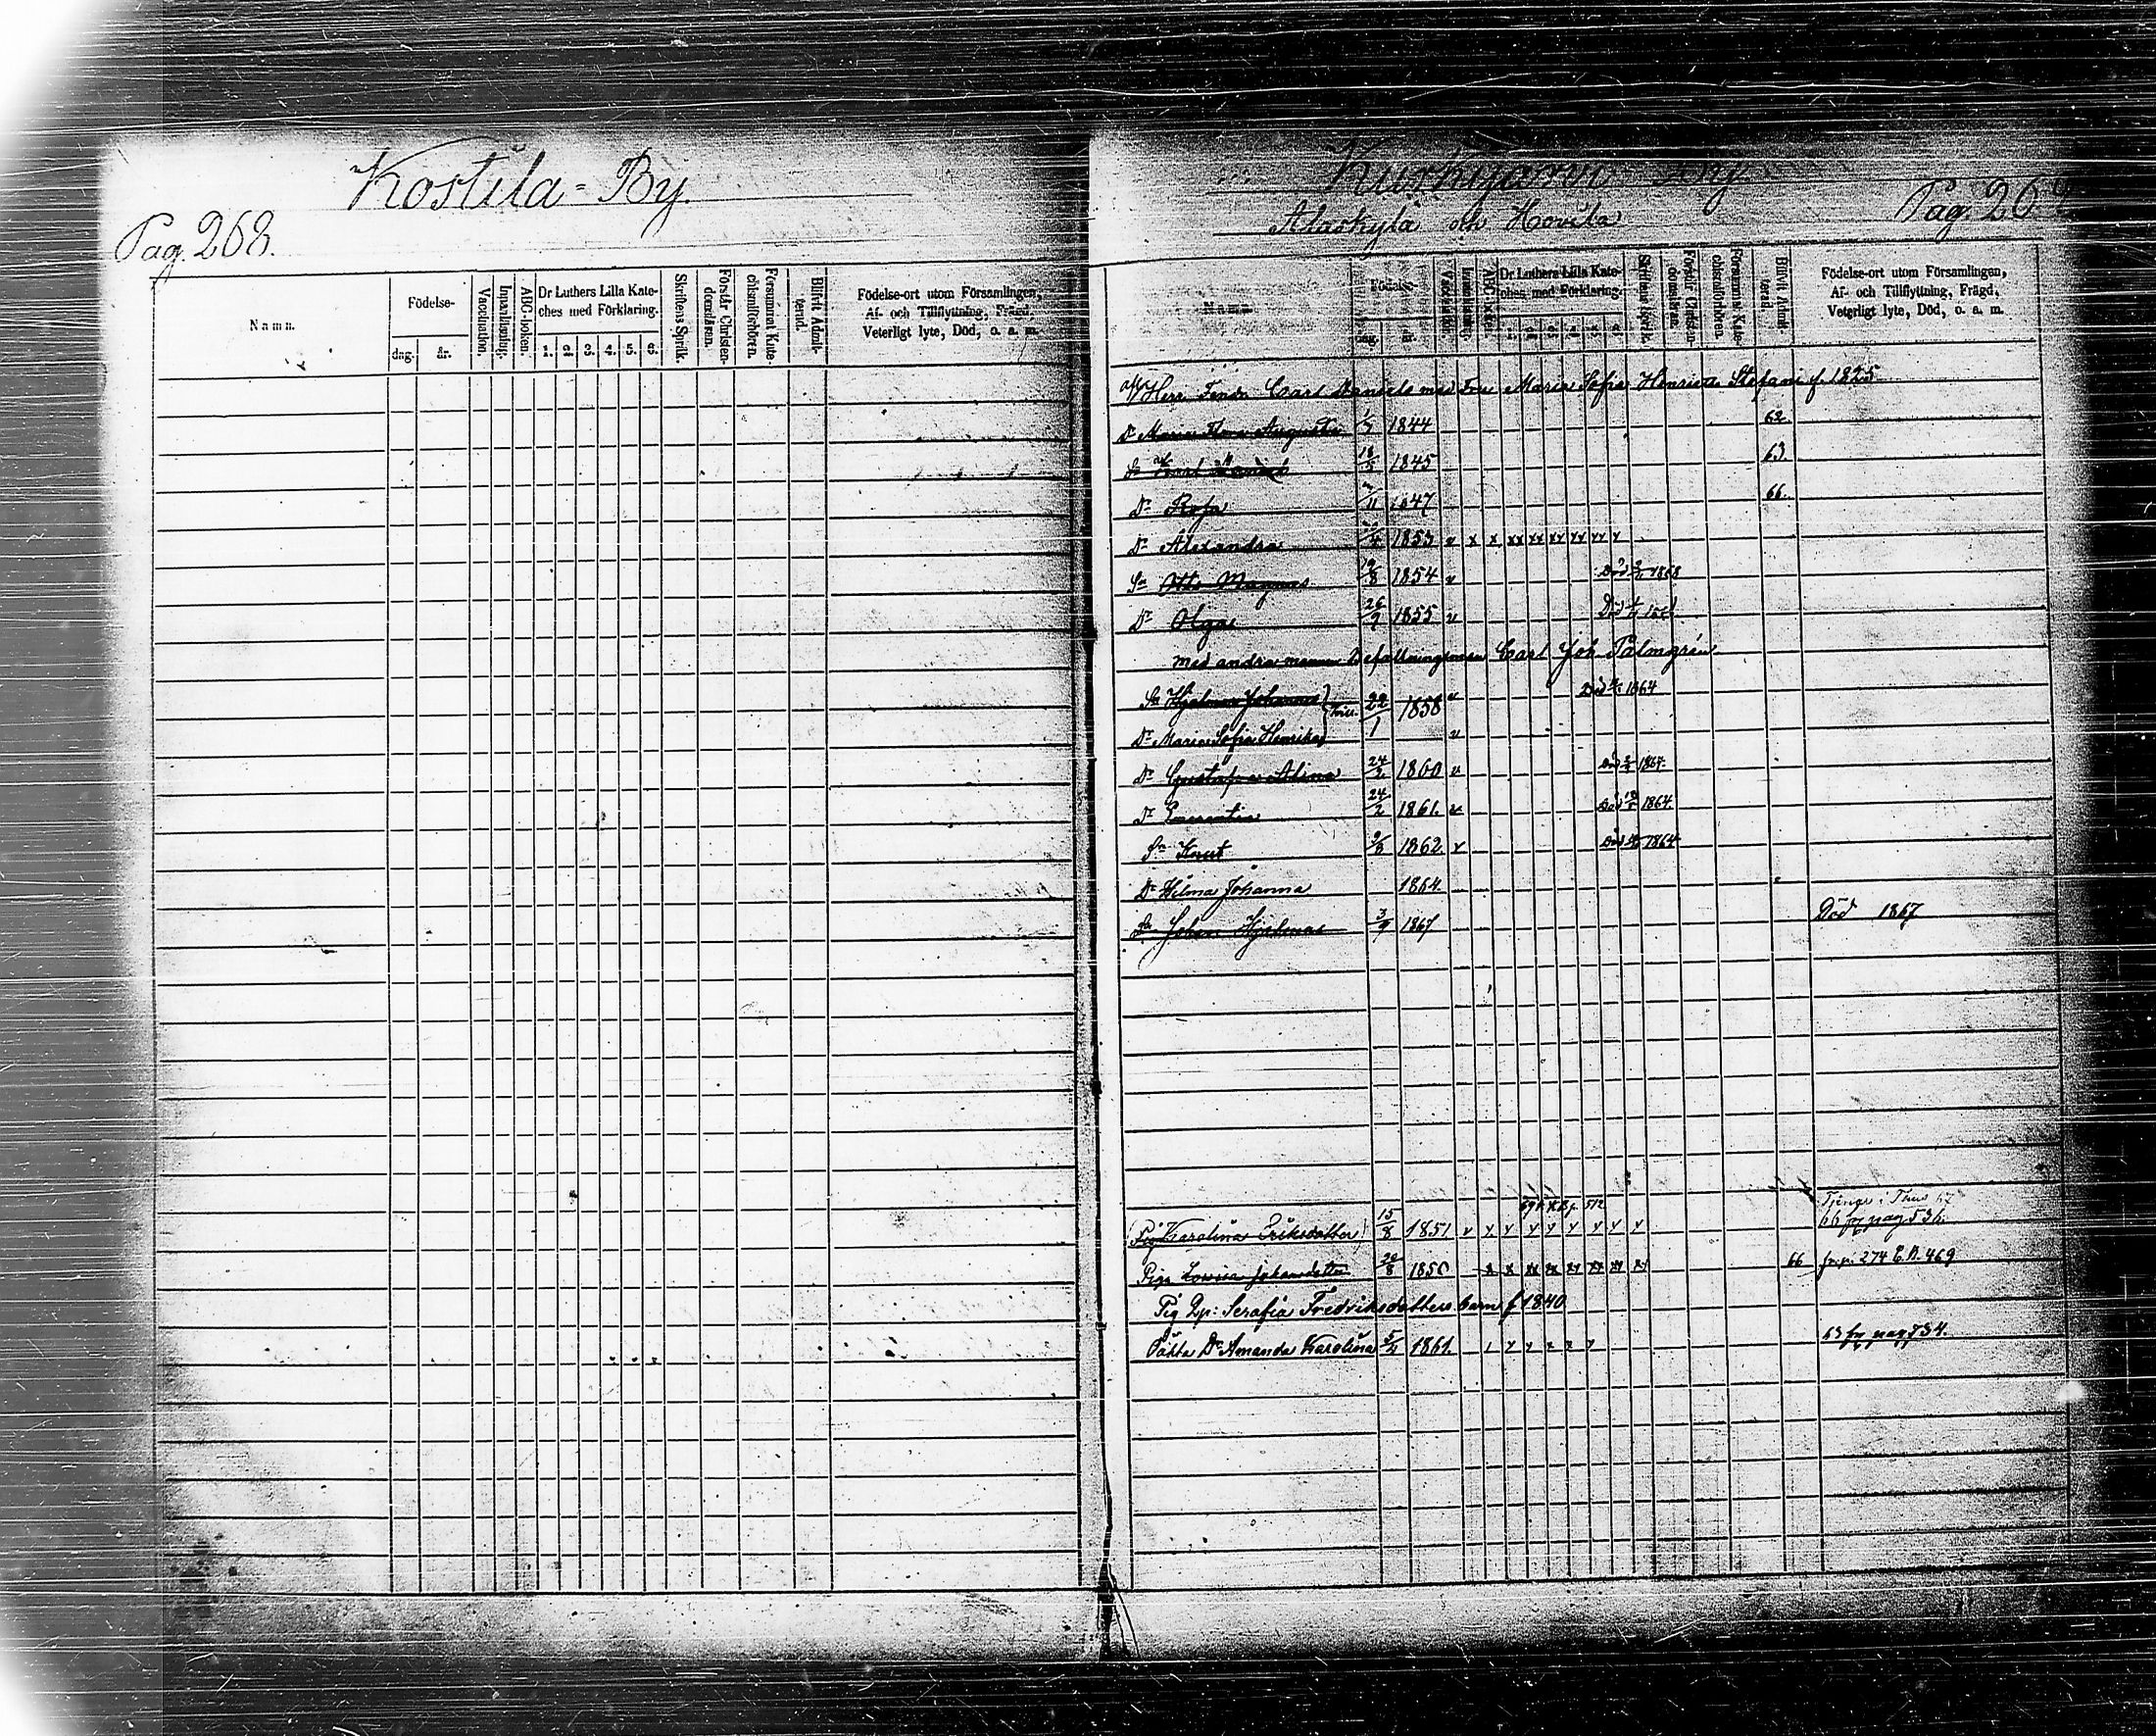 Kostila=By.
Pag. 268.
Namn.
Födelse-
dag. år.
Vaccination.
Innanläsning.
ABC-boken.
Dr Luthers Lilla Kate-
ches med Förklaring.
1. 2. 3. 4. 5. 6.
Skriftens Språk.
Förstår Christen-
domsläran.
Försummat Kate-
chismiförhören.
Blifvit Admit-
terad.
Födelse-ort utom Församlingen,
Af- och Tillflyttning, Frägd,
Veterligt lyte, Död, o. a. m.
Kurkijärvi By
Alaskylä och Hovila
Pag. 269
Namn.
Födelse-
dag. år.
ABC-boken.
Dr Luthers Lilla Kate-
ches med Förklaring.
1. 2. 3. 4. 5. 6.
Skriftens Språk.
Förstår Christen-
domsläran.
Försummat Kate-
chismiförhören.
Blifvit Admit-
terad.
Födelse-ort utom Församlingen,
Af- och Tillflyttning, Frägd,
Veterligt lyte, Död, o. a. m.
Herr Carl Daniels Fru Maria Sofia Henrica Stefani f. 1825
Dr Augusta 1844 62
1845 63
Dr Rosa 1847 66.
Dr Alexandra 1853 v x x xx xx xx
Sn Otto Magnus 1854 v Död 1868
Dr Olga 26/9 1855 v Död
med andra mannen Befallningsman Carl Joh. Palmgrén
Sn Hjalmar Johannes 22/1 1858 v Död 1864
Dr Maria Sofia Henrika v
Dr Gustafva Alina 24/2 1860 v Död 1864
Dr Emerentia 24/2 1861. v Död 1864
Sn Knut 1862 v Död 1864
Dr Hilma Johanna 1864
Sn Johan Hjalmar 3/9 1867 Död 1867
Pig Karolina Eriksdotter 15/8 1851 v Tjenar i
66 fr pag 536.
Piga Lovisa Johansdotter 1850 66 fr. p. 274 469
Pig Serafia Fredriksdotters barn f 1840
Oäkta Dr Amanda Karolina 5/4 1861. 63 fr pag 734.